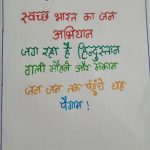 स्वच्छ भारत का जन
अभियान
जग रहा है हिन्दुस्तान
गली मौहल्ले और मकान
जन जन तक पहुँचे यह
पैगाम !